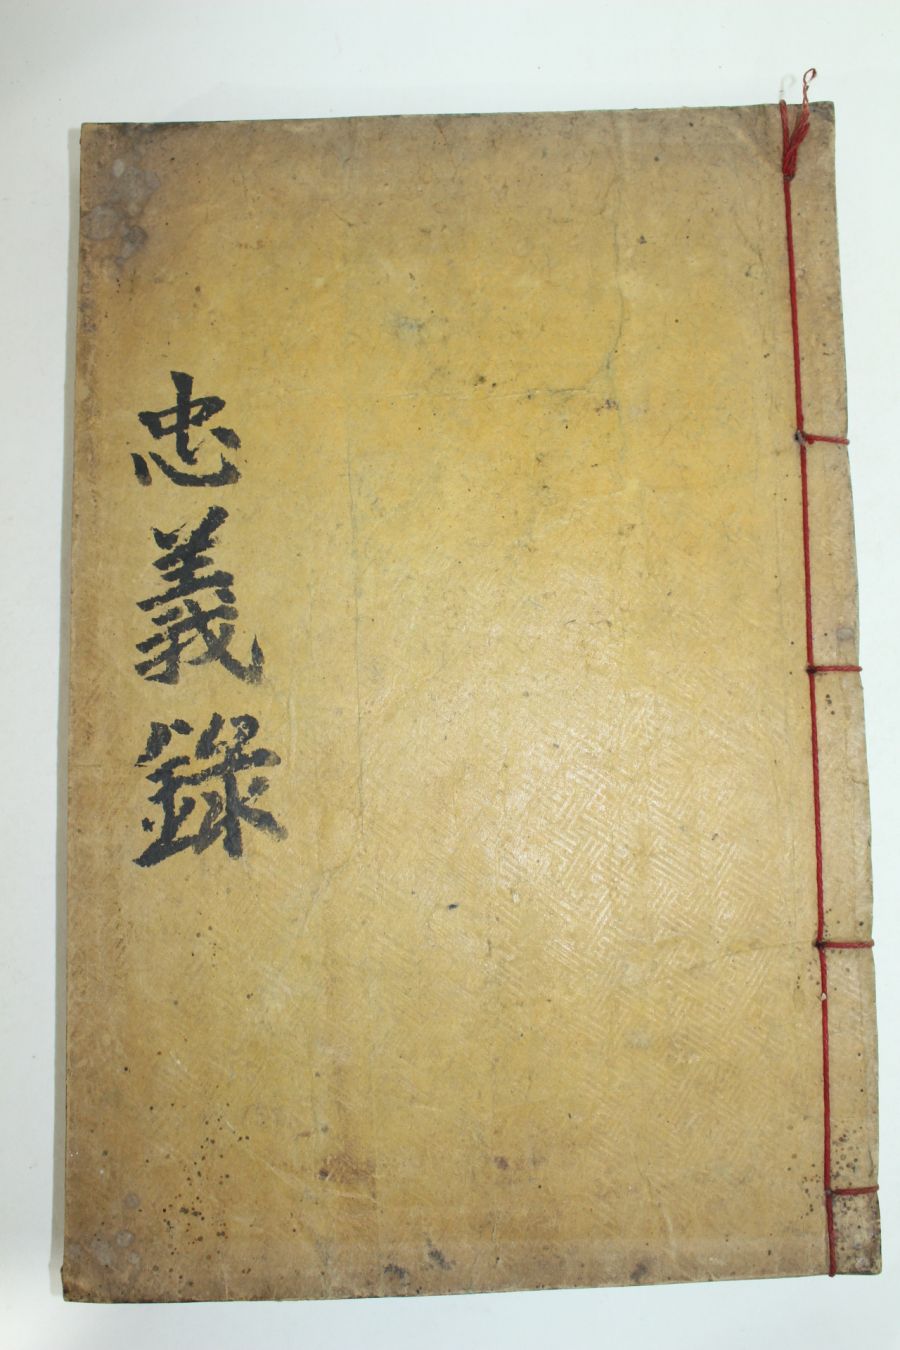 忠義錄